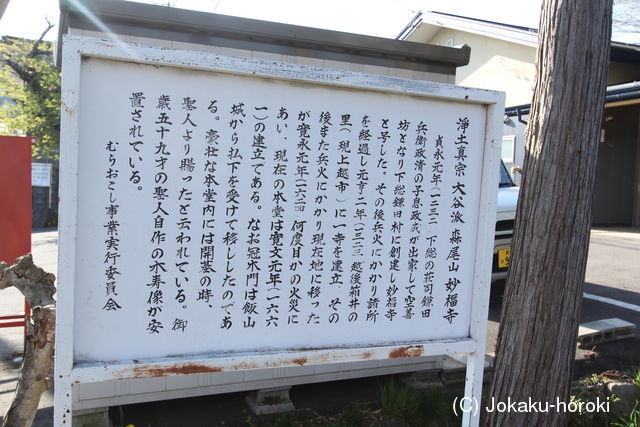 浄土真宗 大谷派 森尾山 妙福寺
貞永元年(一二三二)下総の荘司鎌田
兵衛政清の子息政武が出家して空善
坊となり下総鎌田村に創建し妙福寺
と号した。その後兵火にかかり諸所
を経過し元亨二年(一三二二)越後箱井の
里(現上越市)に一寺を建立、その
後また兵火にかかり現在地に移った
が寛永元年(一六二四)何度目かの火災に
あい、現在の本堂は寛文元年(一六六
一)の建立である。なお冠木門は飯山
城から払下を受けて移ししたのであ
る。豪壮な本堂内には開基の時、
聖人より賜ったと云われている。御
歳五十九才の聖人自作の木寿像が安
置されている。
むらおこし事業実行委員会
(C) Jokaku-hōroki